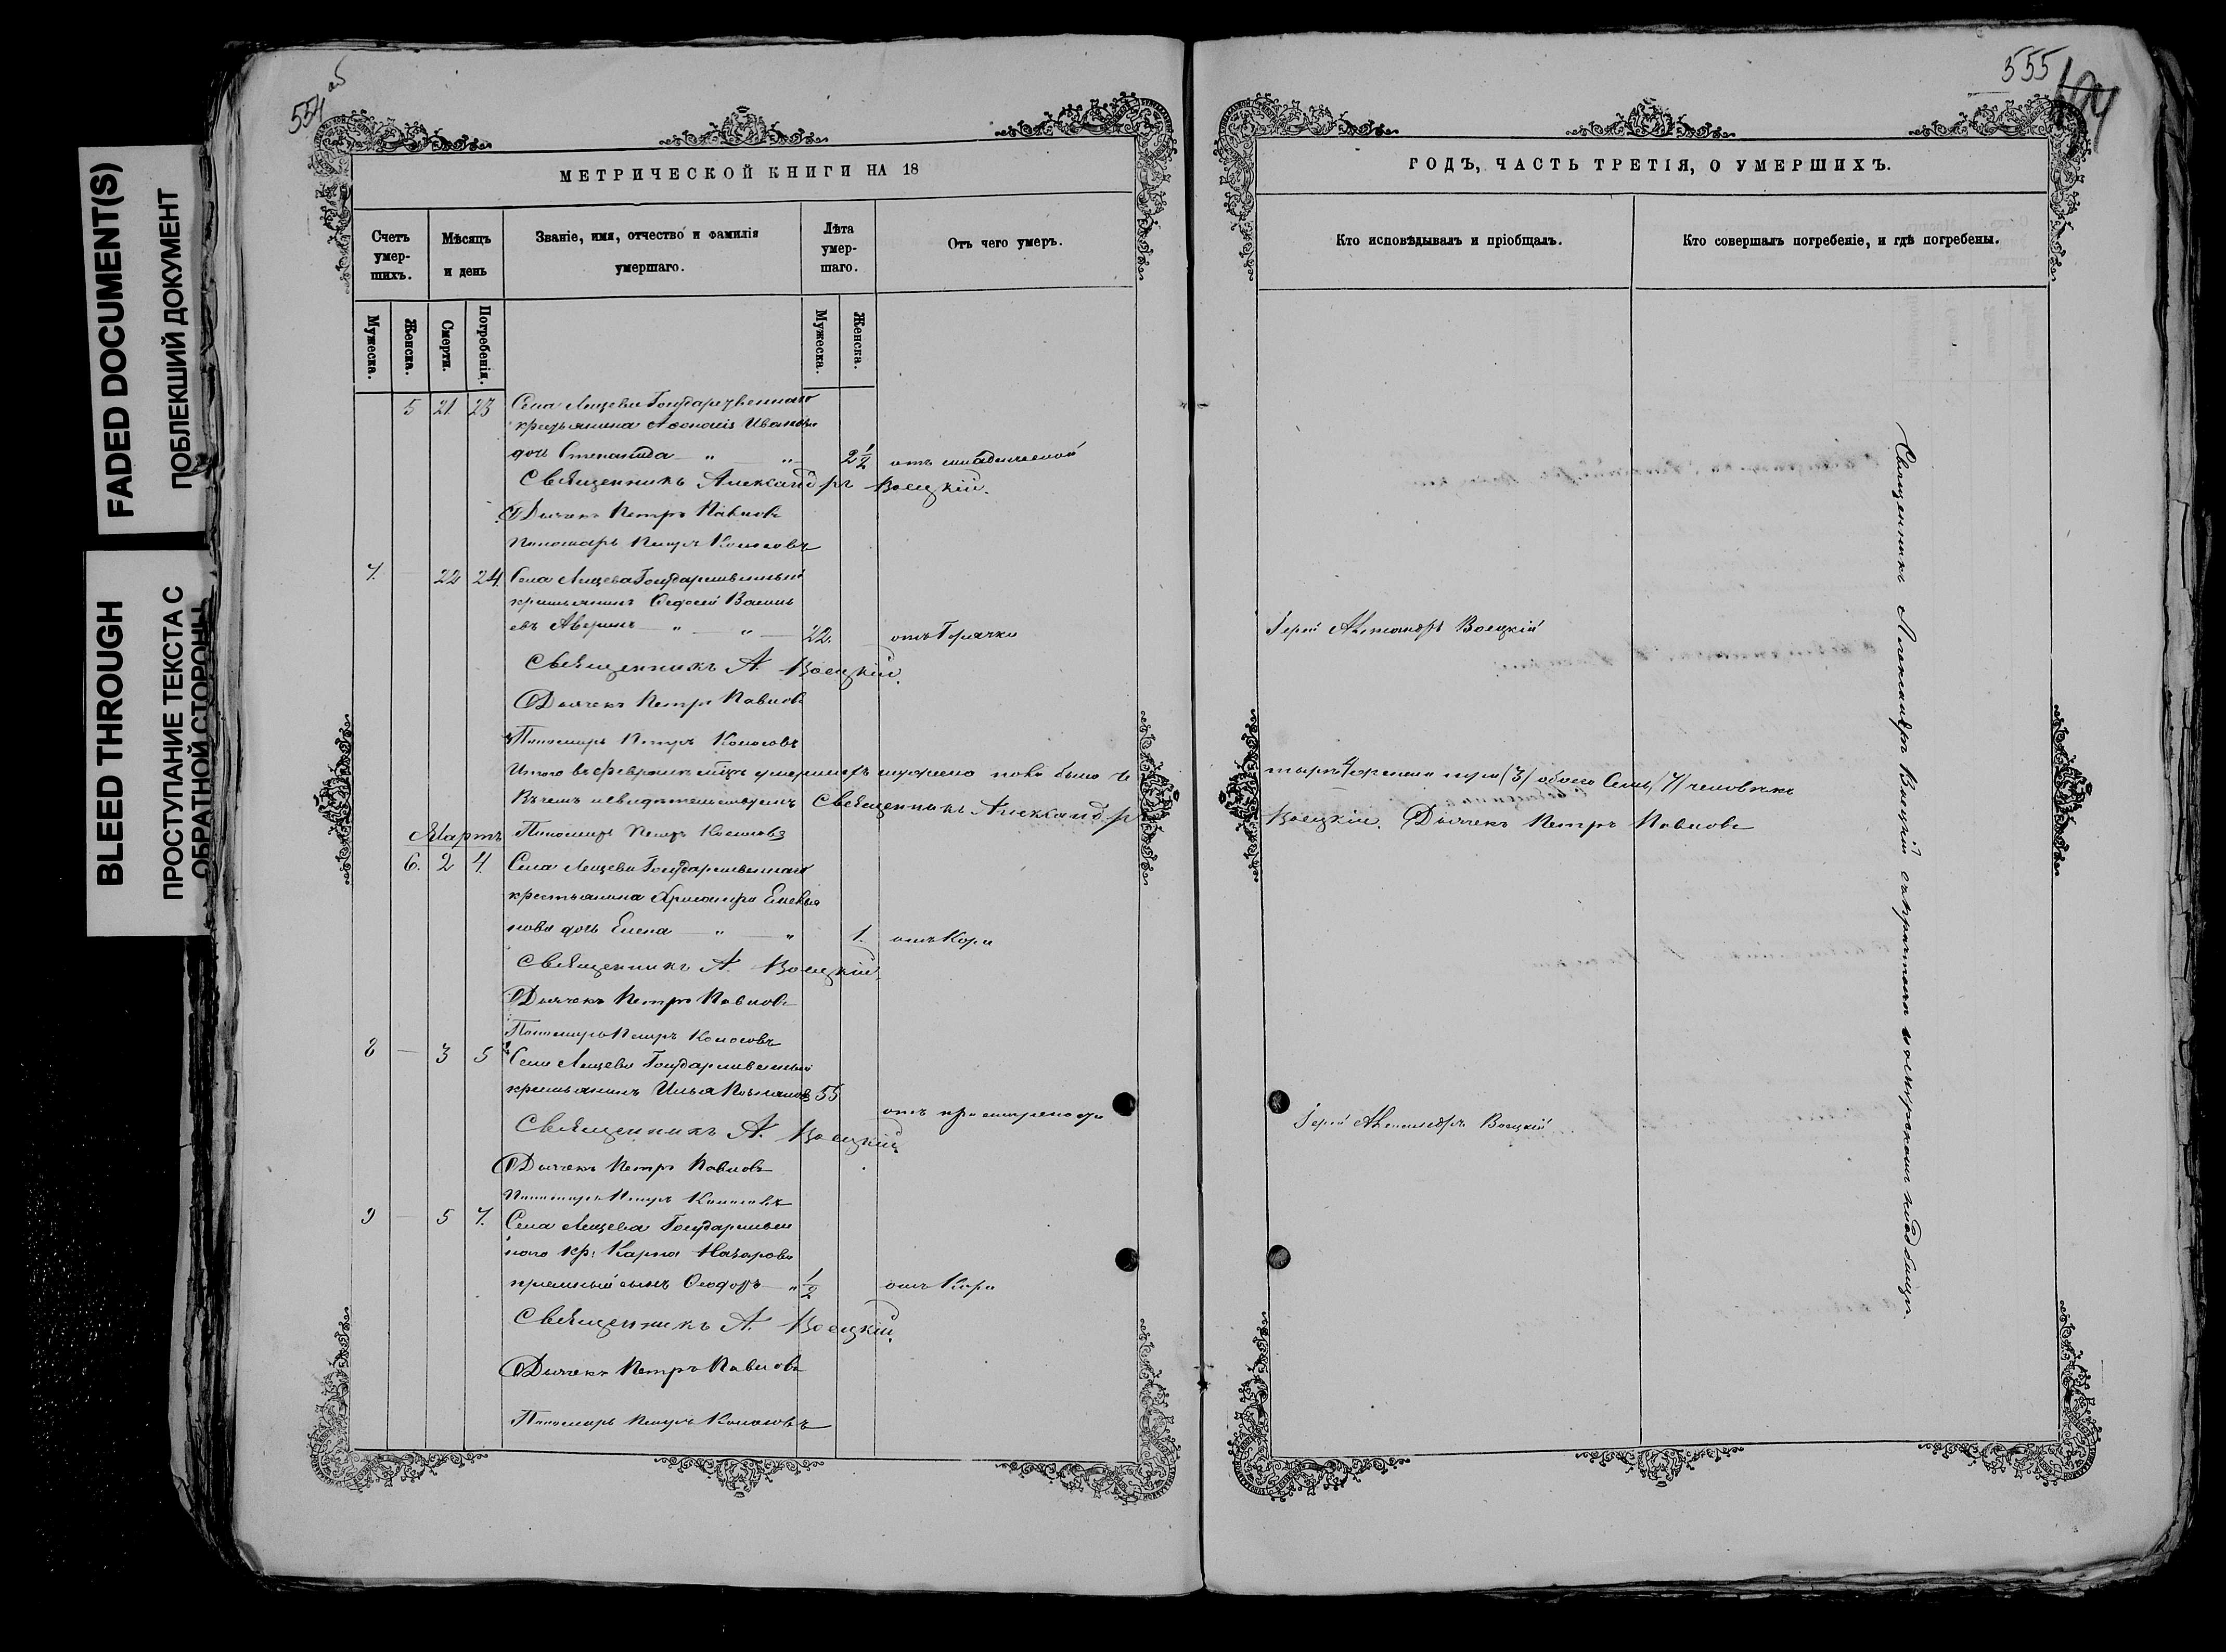 FADED DOCUMENT(S)
ПОБЛЕКШИЙ ДОКУМЕНТ
BLEED THROUGH
ПРОСТУПАНИЕ ТЕКСТА С
ОБРАТНОЙ СТОРОНЫ
554 об
МЕТРИЧЕСКОЙ КНИГИ НА 18
Счетъ умер-шихъ.
Мѣсяцъ и день
Званіе, имя, отчество и фамилія умершаго.
Лѣта умер-шаго.
Отъ чего умеръ.
Мужеска.
Женска.
Смерти.
Погребенія.
Мужеска.
Женска.
5 21 23 Села Лищева Государственнаго
крестьянина Аѳонасія Иванова
дочь Степанида 2 1/2 отъ младенческой
Священникъ Александръ Воецкій.
Дьячекъ Петръ Павловъ
Пономарь Петръ Колосовъ
7. 22 24. Села Лищева Государственный
крестьянинъ Ѳедосей Василь
евъ Аверинъ 22. отъ Горячки
Священникъ А. Воецкій.
Дьячекъ Петръ Павловъ
Пономарь Петръ Колосовъ
Итого въ февралѣ мцѣ умершихъ мужеска пола было че
Въ чемъ и свидѣтельствуемъ Священникъ Александръ
Мартъ Пономарь Петръ Колосовъ
6. 2 4. Села Лищева Государственнаго
крестьянина
нова дочь Елена 1. отъ Кори
Священникъ А. Воецкій.
Дьячекъ Петръ Павловъ
Пономарь Петръ Колосовъ
8 3 5 Села Лищева Государственный
крестьянинъ Илья 55
отъ простуды
Священникъ А. Воецкій.
Дьячекъ Петръ Павловъ
Пономарь Петръ Колосовъ
9 5 7. Села Лищева Государствен
наго кр: Карпа Назарова
пріемный сынъ Ѳеодоръ 1/2 отъ Кори
Священникъ А. Воецкій.
Дьячекъ Петръ Павловъ
Пономарь Петръ Колосовъ
555
ГОДЪ, ЧАСТЬ ТРЕТІЯ, О УМЕРШИХЪ.
Кто исповѣдывалъ и пріобщалъ.
Кто совершалъ погребеніе, и гдѣ погребены.
Іерей Александръ Воецкій
тыре 4 женска три (3) обоего Семь (7) человѣкъ
Воецкій. Дьячекъ Петръ Павловъ
Іерей Александръ Воецкій
Священникъ Александръ Воецкій съ причтомъ на приходскомъ кладбищѣ.